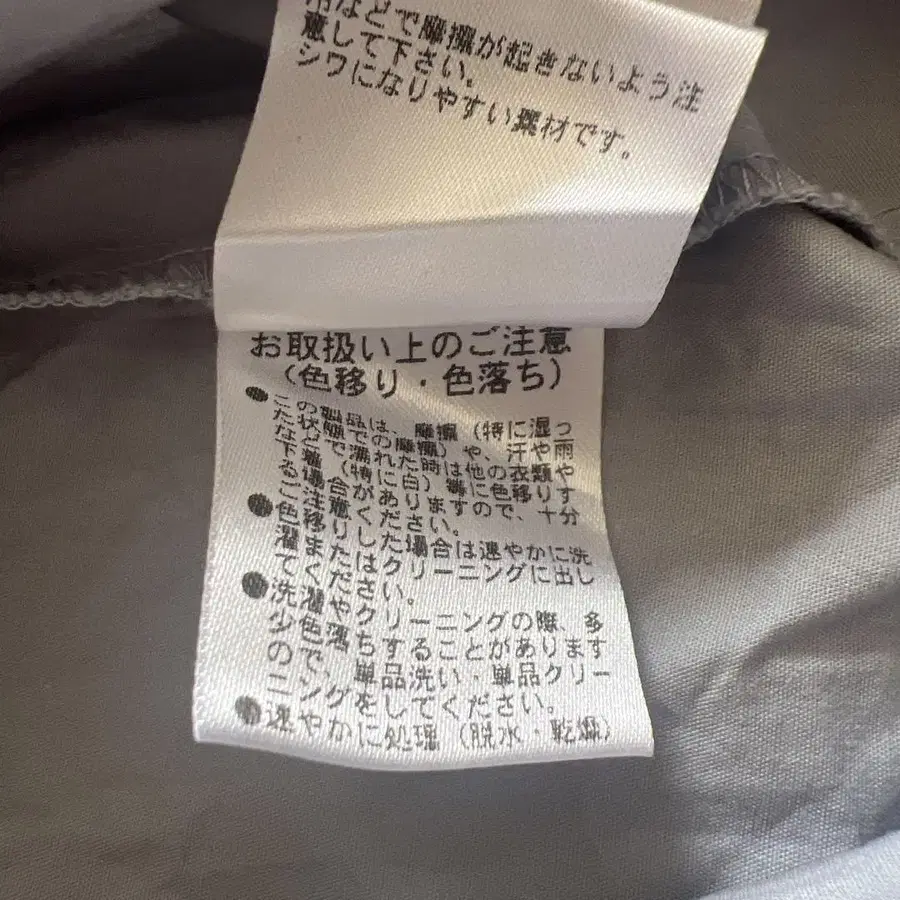 用などで摩擦が起きないよう注
意して下さい。
シワになりやすい素材です。
お取扱い上のご注意
(色移り・色落ち)
●この製品は、摩擦(特に湿っ
た状態での摩擦)や、汗や雨
などで濡れた時は他の衣類や
下着(特に白)等に色移りす
る場合がありますので、十分
ご注意ください。
●色移りした場合は速やかに洗
濯またはクリーニングに出し
てください。
●洗濯やクリーニングの際、多
少色落ちすることがあります
ので、単品洗い・単品クリー
ニングをしてください。
●速やかに処理(脱水・乾燥)